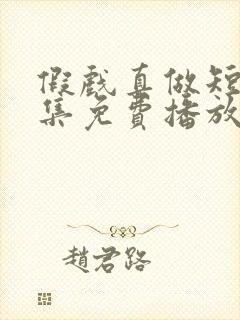 假戲真做短
集免費播放
趙君路